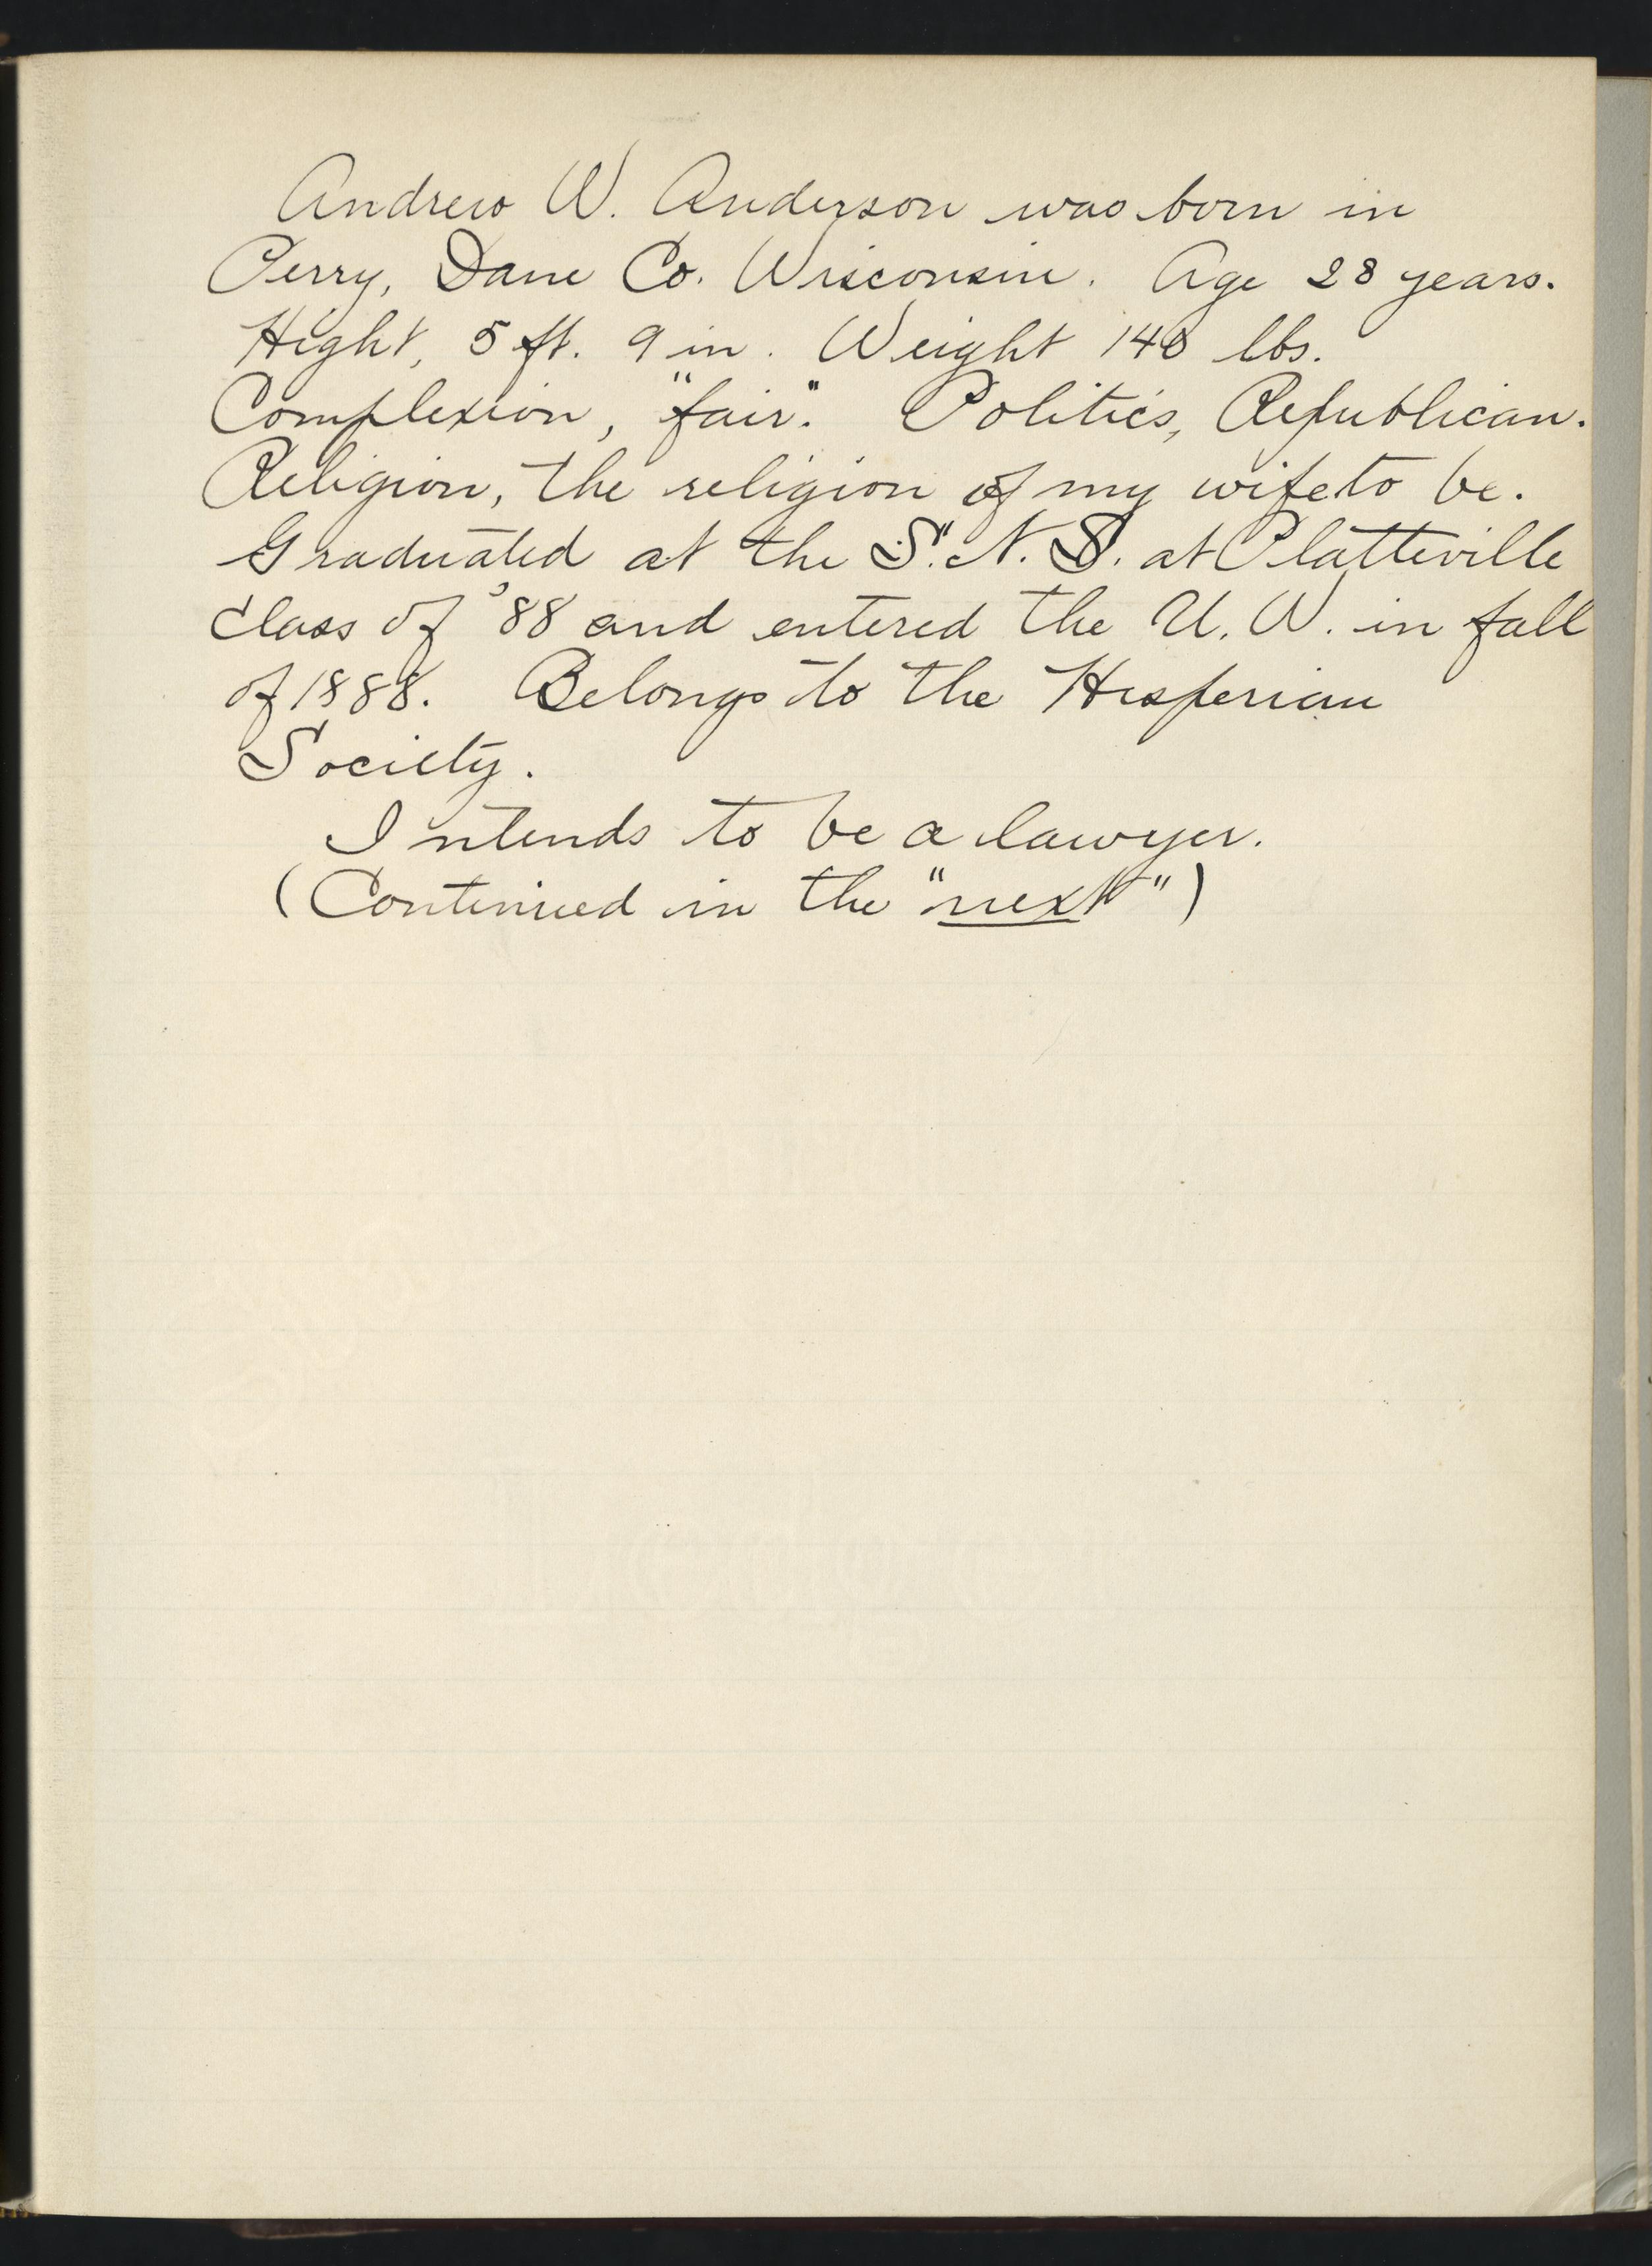 Andrew W. Anderson was born in
Perry, Dane Co. Wisconsin. Age 28 years.
Hight, 5 ft. 9 in. Weight 148 lbs.
Complexion, "fair". Politics, Republican.
Religion, the religion of my wife to be.
Graduated at the S. N. S. at Platteville
class of '88 and entered the U. W. in fall
of 1888. Belongs to the Hesperian
Society.
Intends to be a lawyer.
(Continued in the "next")